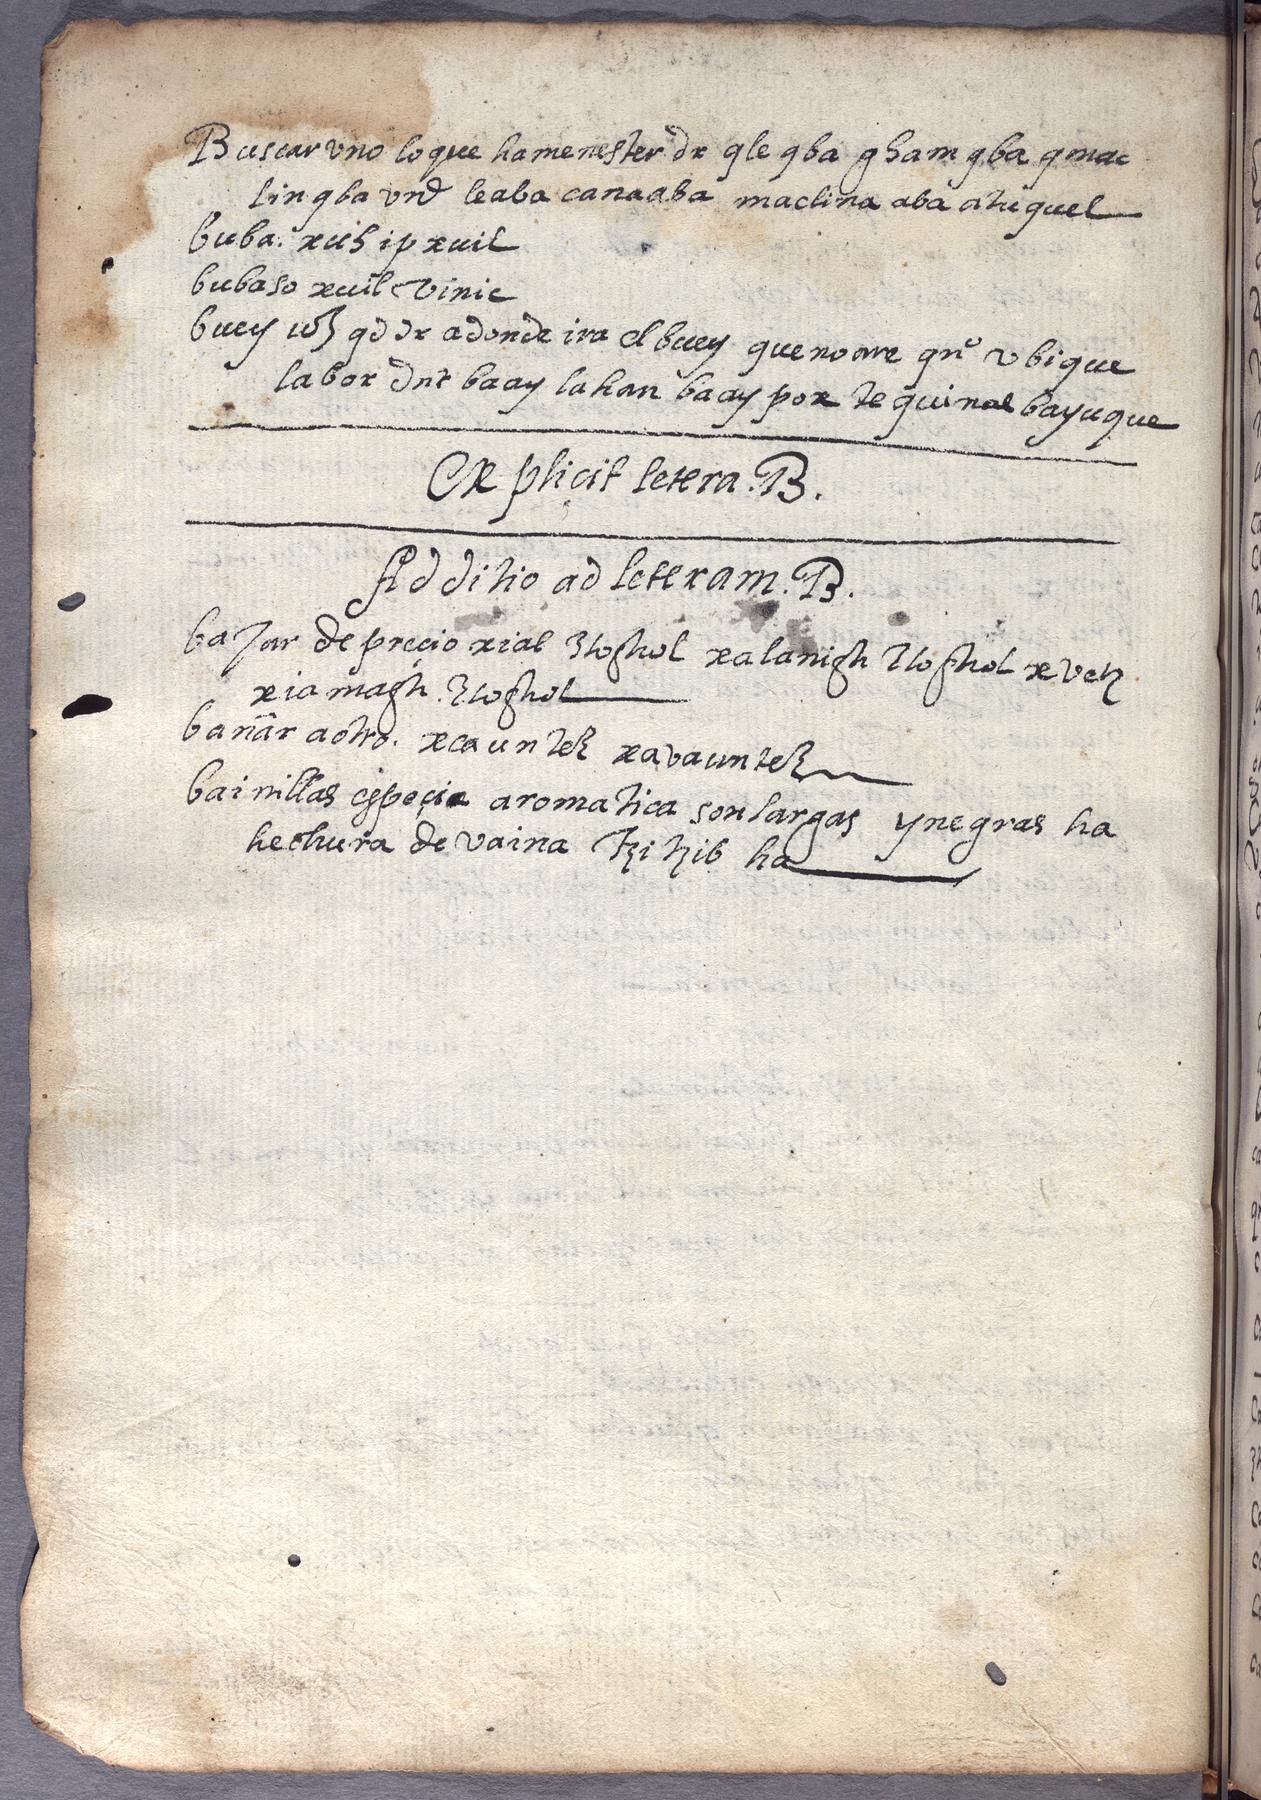 Buscar vno lo que ha menester dr qle qba gham qba q mac
lin qba vnd leaba canaaba maclina aba atuquel
buba. xuh ip xuil
buboso xuil vinic
buey qd dr adonde ira el buey que no are qn° vbique
labor baay lahan baay por te quinal bayuque
Explicit letera .B.
Additio ad leteram .B.
bajar de preçio xial ꜫtoghol xalanigh ꜫtoghol xvetz
xiamagh ꜫtoghol
bañar a otro. xca unteꜫ xavaunteꜫ
bainillas espeçia aromatica son largas y negras ha
hechura de vaina tzitzib ha